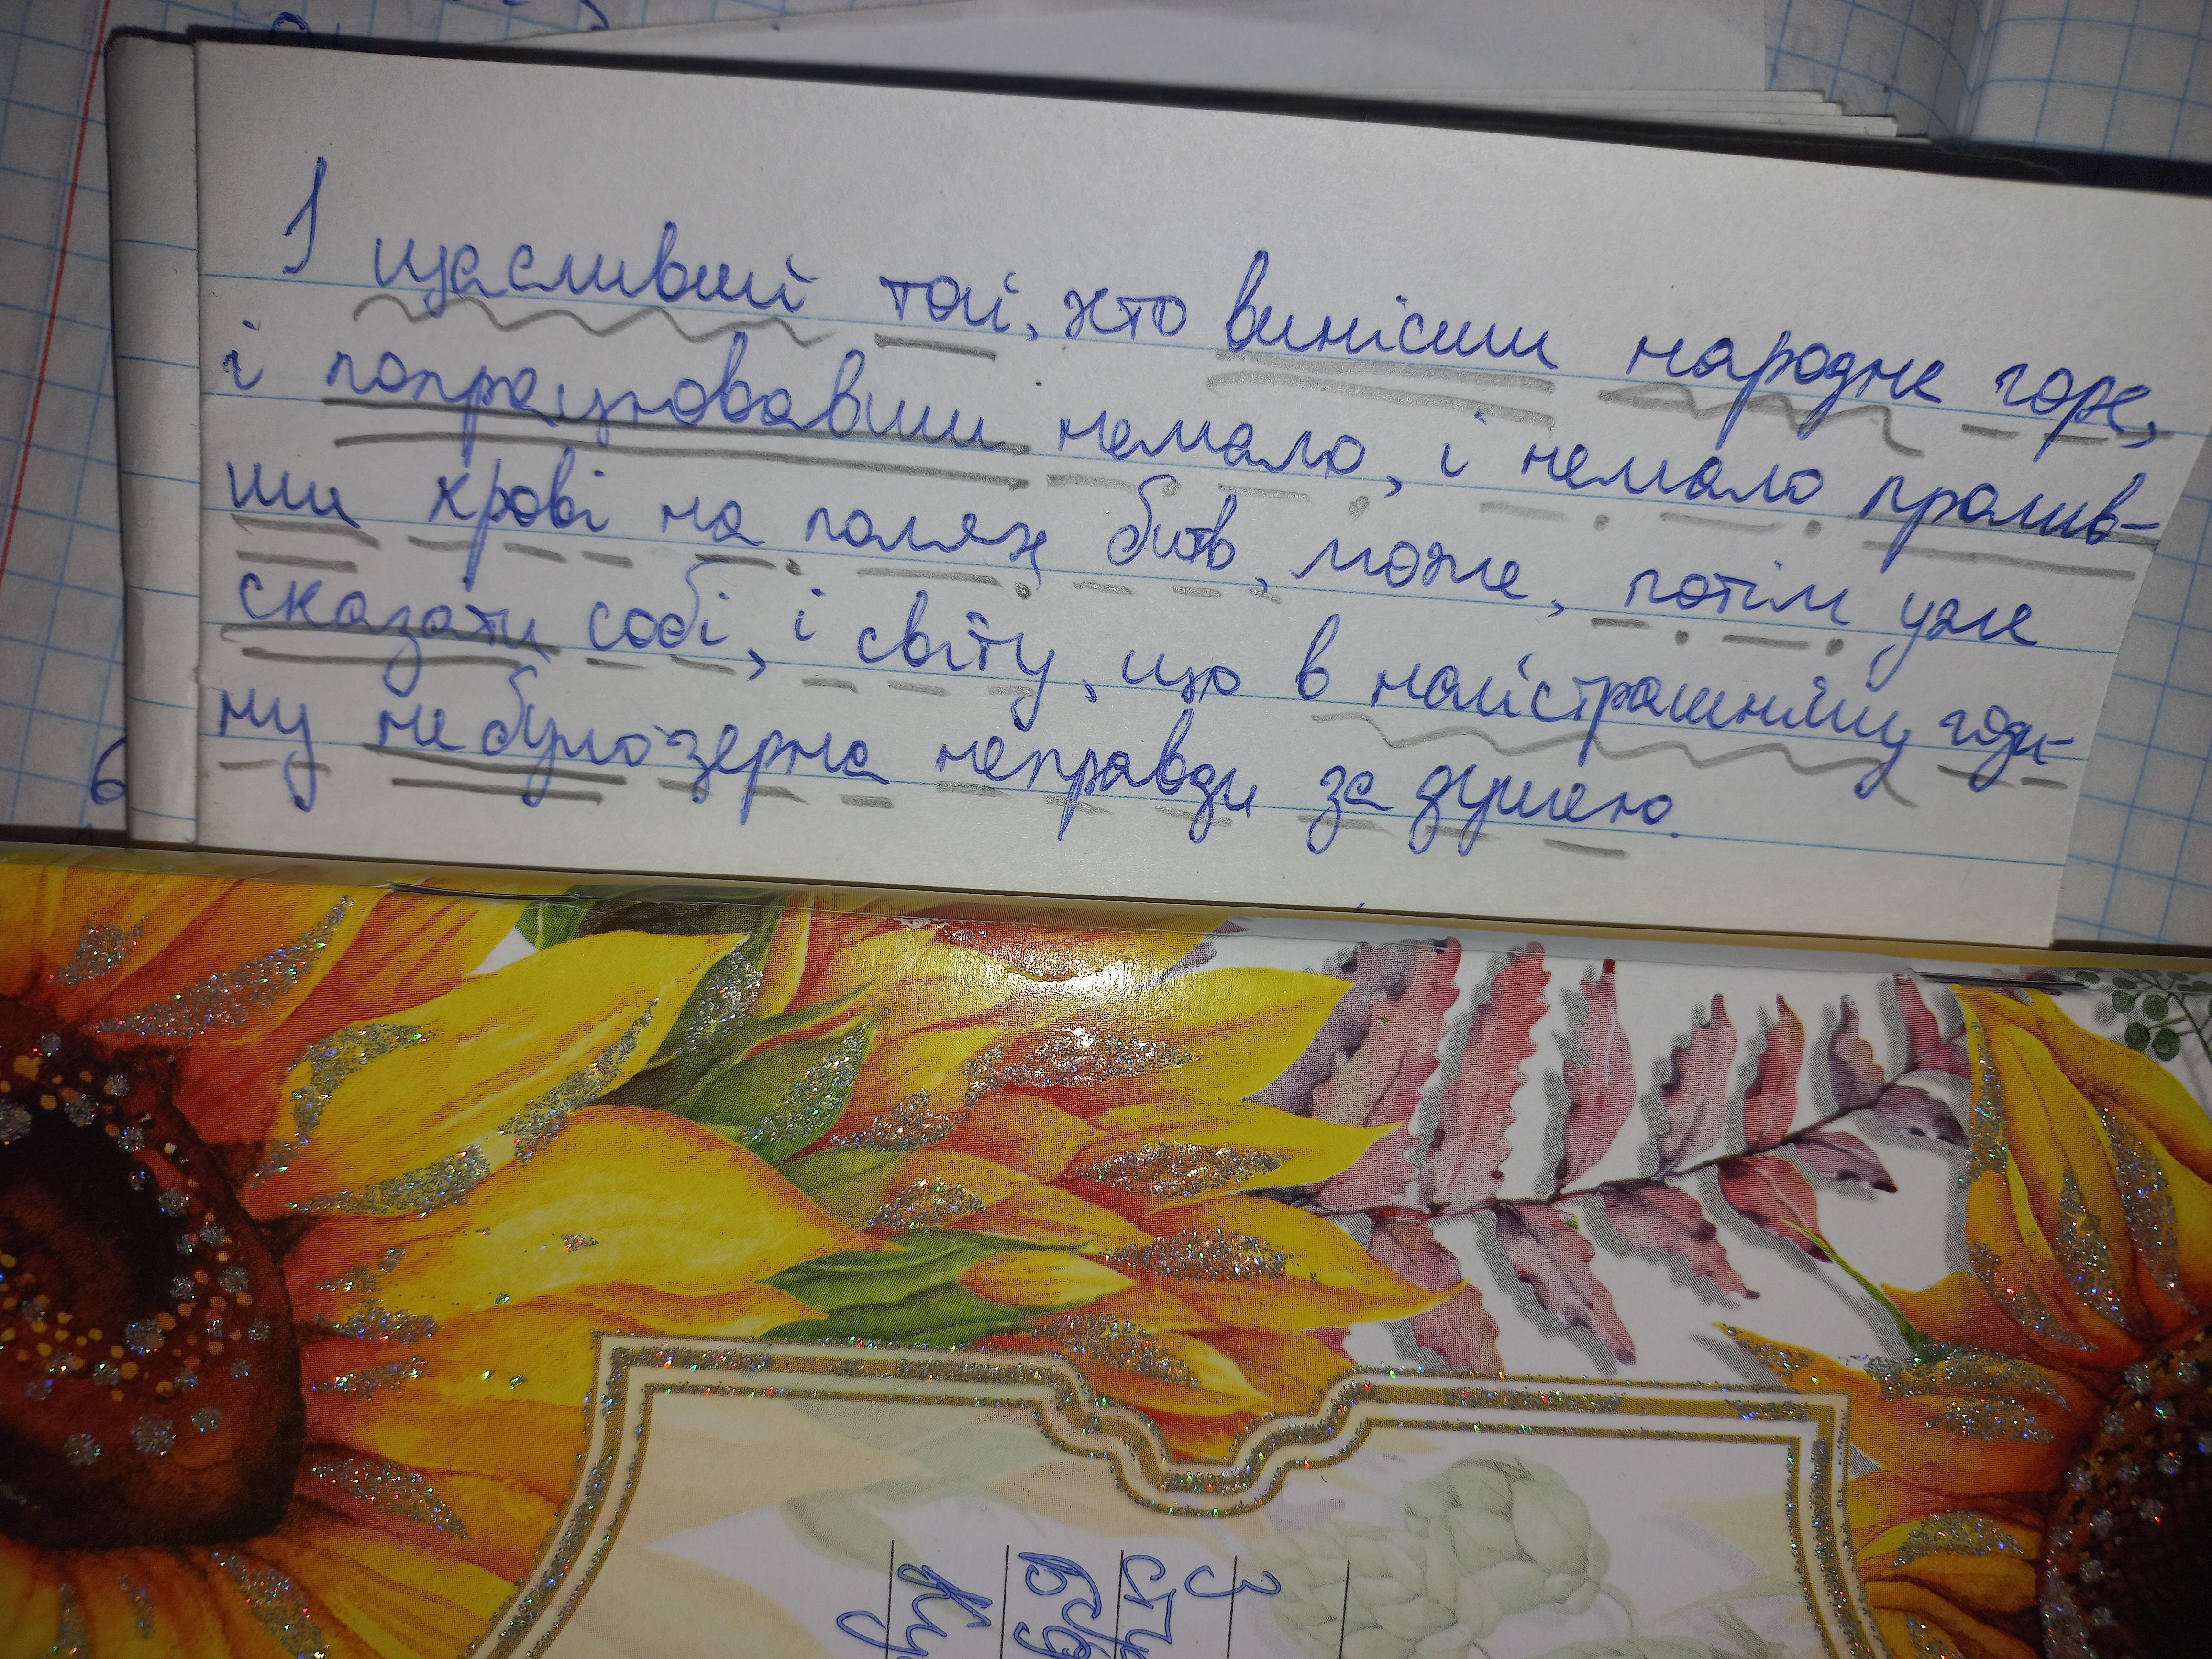 І щасливий той, хто винісши народне горе,
і попрацювавши немало, і немало пролив-
ши крові на полях битв, може, потім уже
сказати собі, і світу, що в найстрашнішу годи-
ну не було зерна неправди за душею.
6